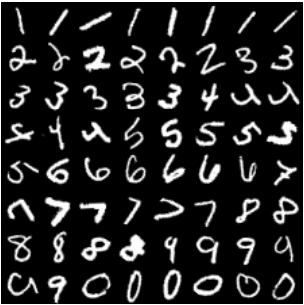 1 1 1 1 1 1 1 1
2 2 2 2 2 2 3 3
3 3 3 3 3 4 4 4
4 4 4 5 5 5 5 5
5 6 6 6 6 6 6 7
7 7 7 7 7 7 8 8
8 8 8 8 9 9 9 9
9 9 0 0 0 0 0 0